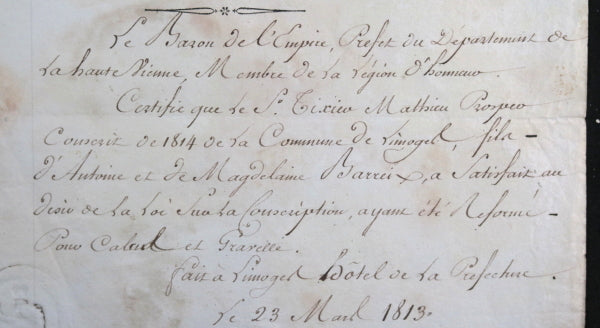 Le Baron de l'Empire, Prefet du Département de
la haute Vienne, Membre de la Légion d'honneur.
Certifie que le Sr. Tixier Mathieu Prosper
Conscrit de 1814 de la Commune de Limoges, fils
d'Antoine et de Magdelaine Barreix, a Satisfait au
disir de la Loi Sur la Conscription, ayant été Reformé
Pour Calcul et Gravelle.
fait à Limoges hôtel de la Préfecture.
Le 23 Mars 1813.